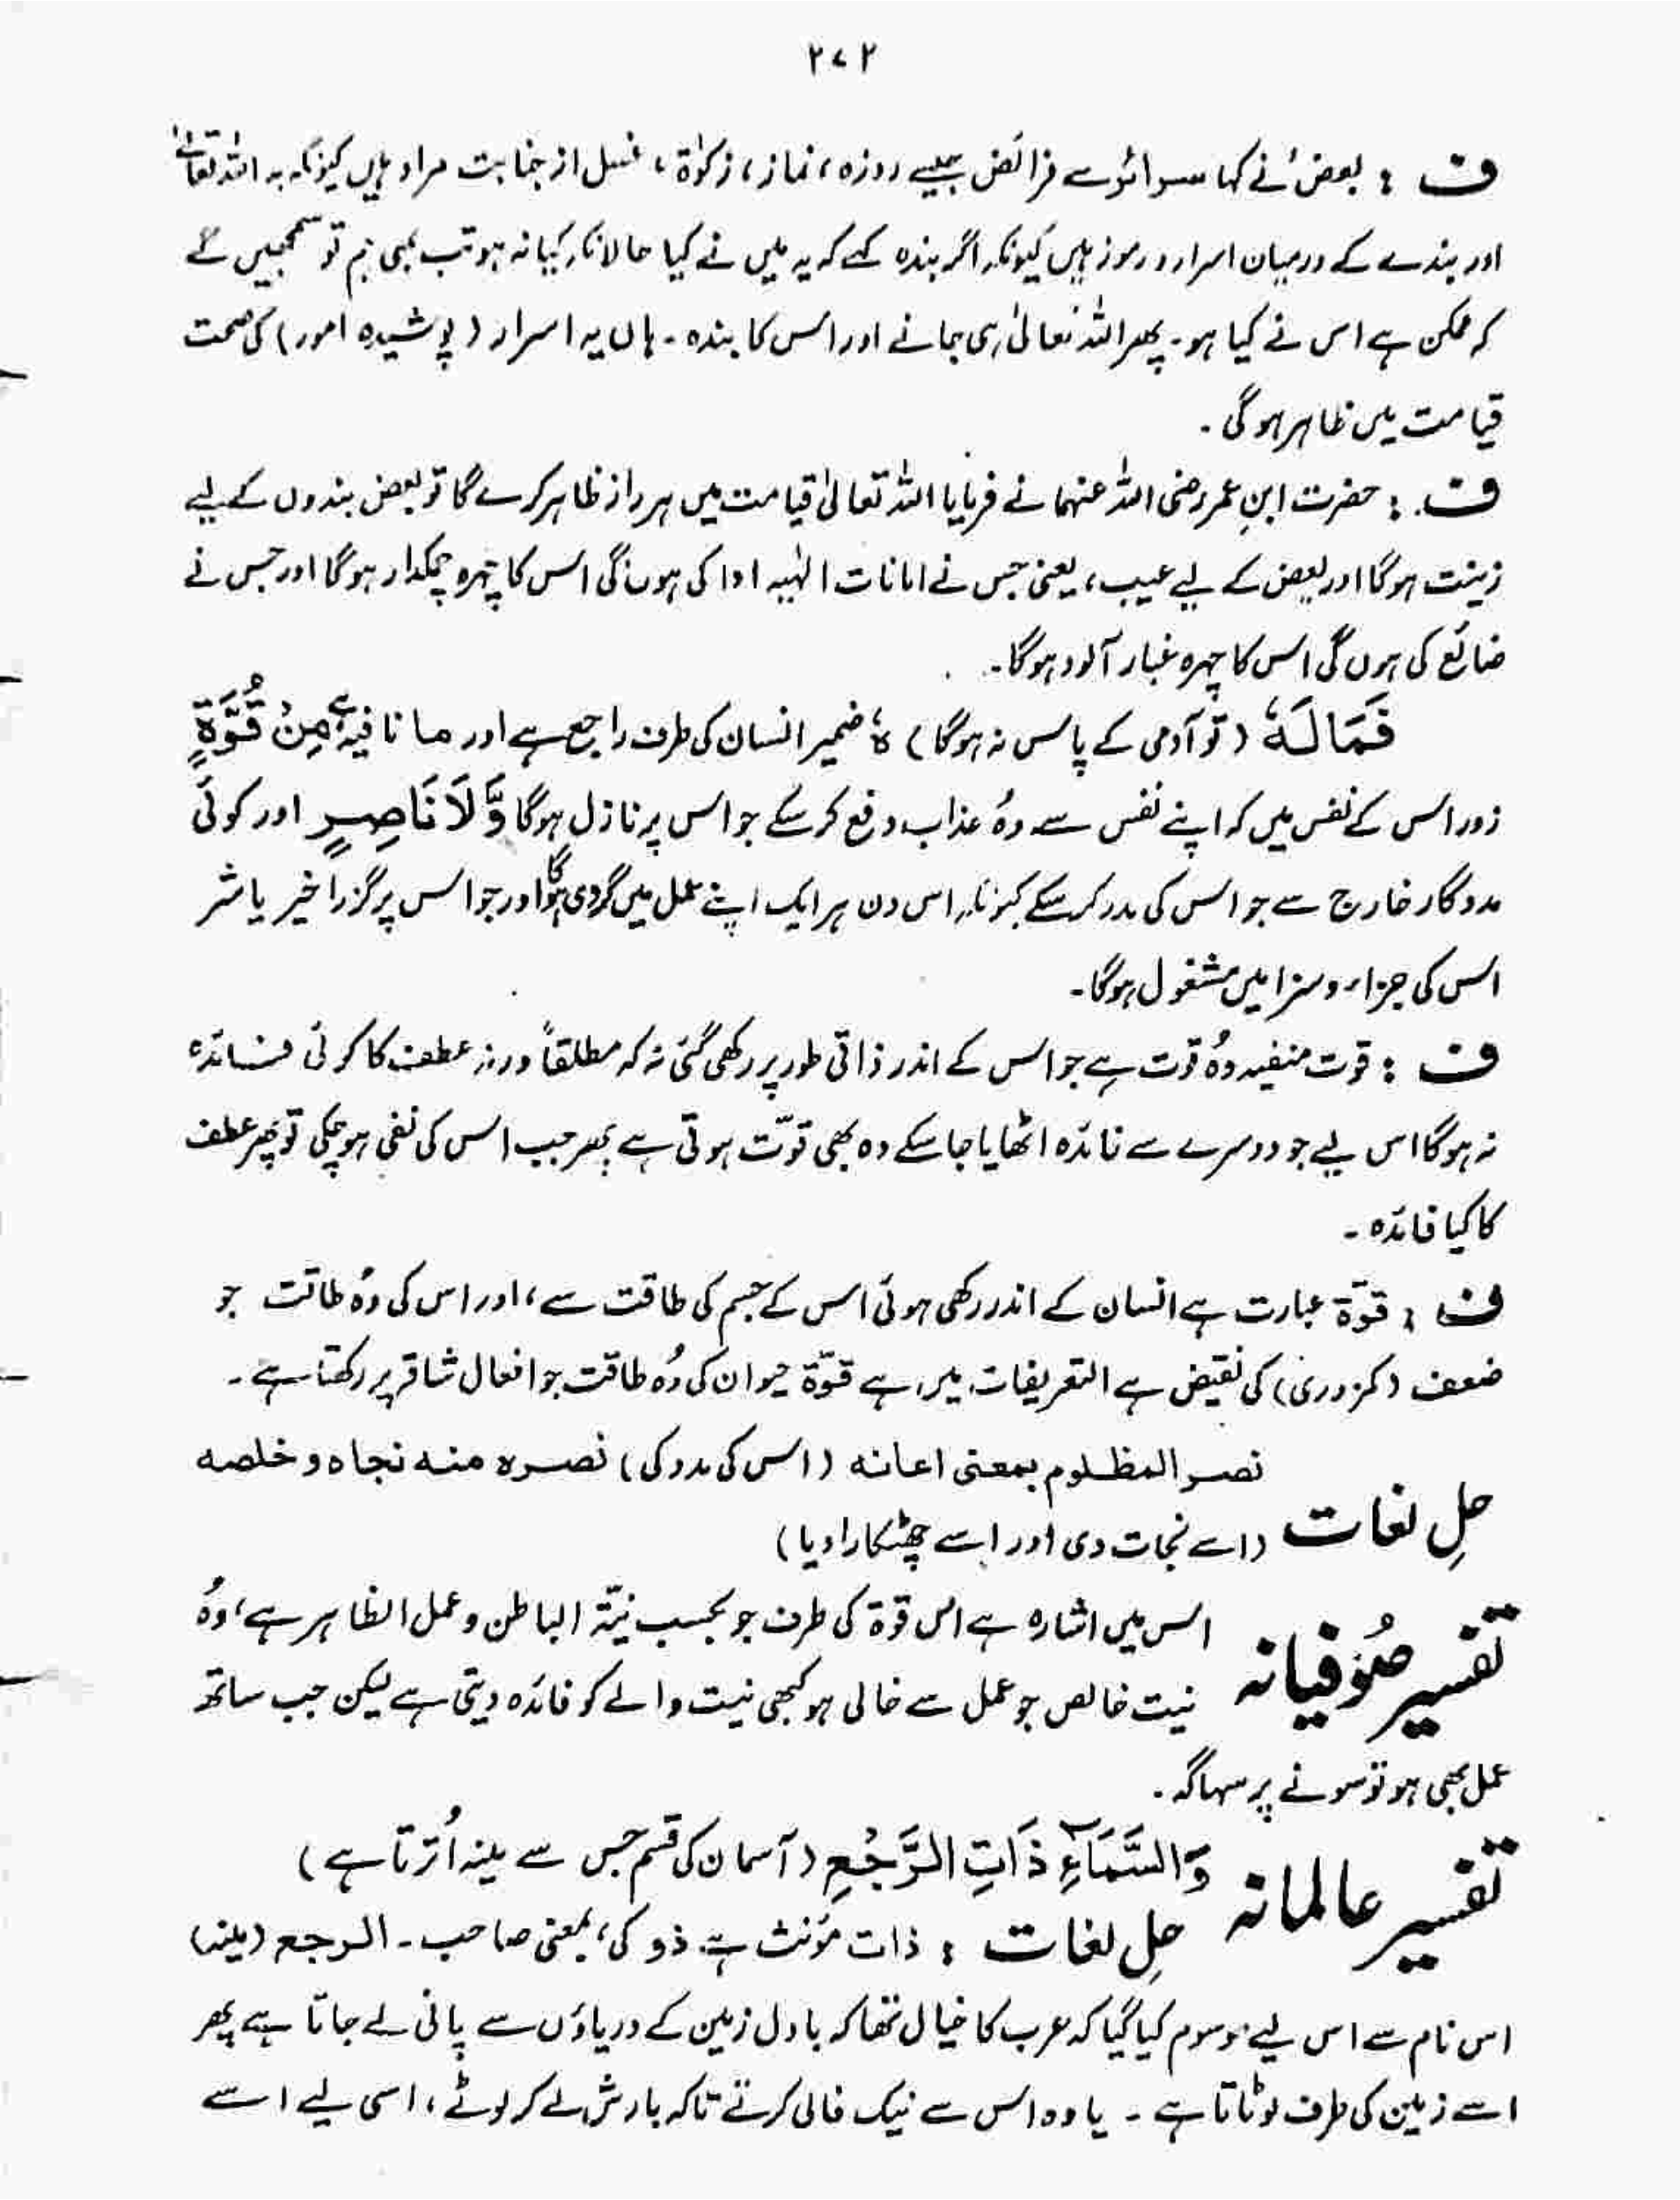 ۲۷۲
ف : بعض نے کہا سرائر سے فرائض جیسے روزہ، نماز، زکوٰۃ، غسل از جنابت مراد ہیں کیونکہ یہ اللہ تعالیٰ
اور بندے کے درمیان اسرار و رموز ہیں کیونکہ اگر بندہ کہے کہ یہ میں نے کیا حالانکہ کیا نہ ہو تب بھی ہم تو سمجھیں گے
کہ ممکن ہے اس نے کیا ہو۔ پھر اللہ تعالیٰ ہی جانے اور اس کا بندہ۔ ہاں یہ اسرار (پوشیدہ امور) کی صحت
قیامت میں ظاہر ہو گی۔
ف : حضرت ابنِ عمر رضی اللہ عنہما نے فرمایا اللہ تعالیٰ قیامت میں ہر راز ظاہر کرے گا تو بعض بندوں کے لیے
زینت ہو گا اور بعض کے لیے عیب، یعنی جس نے امانات الٰہیہ ادا کی ہوں گی اس کا چہرہ چمکدار ہو گا اور جس نے
ضائع کی ہوں گی اس کا چہرہ غبار آلود ہو گا۔
فَمَا لَهٗ (تو آدمی کے پاس نہ ہو گا) ہٗ ضمیر انسان کی طرف راجع ہے اور ما نافیہ ہے مِنْ قُوَّةٍ
زور اس کے نفس میں کہ اپنے نفس سے وہُ عذاب دفع کر سکے جو اس پر نازل ہو گا وَّلَا نَاصِرٍ اور کوئی
مددگار خارج سے جو اس کی مدد کر سکے کیونکہ اس دن ہر ایک اپنے عمل میں گروی ہو گا اور جو اس پر گزرا خیر یا شر
اس کی جزاء و سزا میں مشغول ہو گا۔
ف : قوت منفیہ وہُ قوت ہے جو اس کے اندر ذاتی طور پر رکھی گئی نہ کہ مطلقاً ورنہ عطف کا کوئی فائدہ
نہ ہو گا اس لیے جو دوسرے سے فائدہ اٹھایا جا سکے وہ بھی قوّت ہوتی ہے پھر جب اس کی نفی ہو چکی تو پھر عطف
کا کیا فائدہ۔
ف : قوّۃ عبارت ہے انسان کے اندر رکھی ہوئی اس کے جسم کی طاقت سے، اور اس کی وہُ طاقت جو
ضعف (کمزوری) کی نقیض ہے التعریفات میں ہے قوّۃ حیوان کی وہُ طاقت جو افعال شاقہ پر رکھتا ہے۔
نصر المظلوم بمعنی اعانہ (اس کی مدد کی) نصرہ منہ نجاہ و خلصہ
حلِ لغات (اسے نجات دی اور اسے چھٹکارا دیا)
اس میں اشارہ ہے اس قوۃ کی طرف جو بحسب نیّۃ الباطن و عمل الظاہر ہے، وہُ
تفسیر صُوفیانہ نیت خالص جو عمل سے خالی ہو کبھی نیت والے کو فائدہ دیتی ہے لیکن جب ساتھ
عمل بھی ہو تو سونے پر سہاگہ۔
وَالسَّمَآءِ ذَاتِ الرَّجْعِ (آسمان کی قسم جس سے مینہ اُترتا ہے)
تفسیر عالمانہ حلِ لغات : ذات مؤنث ہے ذو کی، بمعنی صاحب۔ الرجع (مینہ)
اس نام سے اس لیے موسوم کیا گیا کہ عرب کا خیال تھا کہ بادل زمین کے دریاؤں سے پانی لے جاتا ہے پھر
اسے زمین کی طرف لوٹاتا ہے۔ یا وہ اس سے نیک فالی کرتے تاکہ بارش لے کر لوٹے، اسی لیے اسے